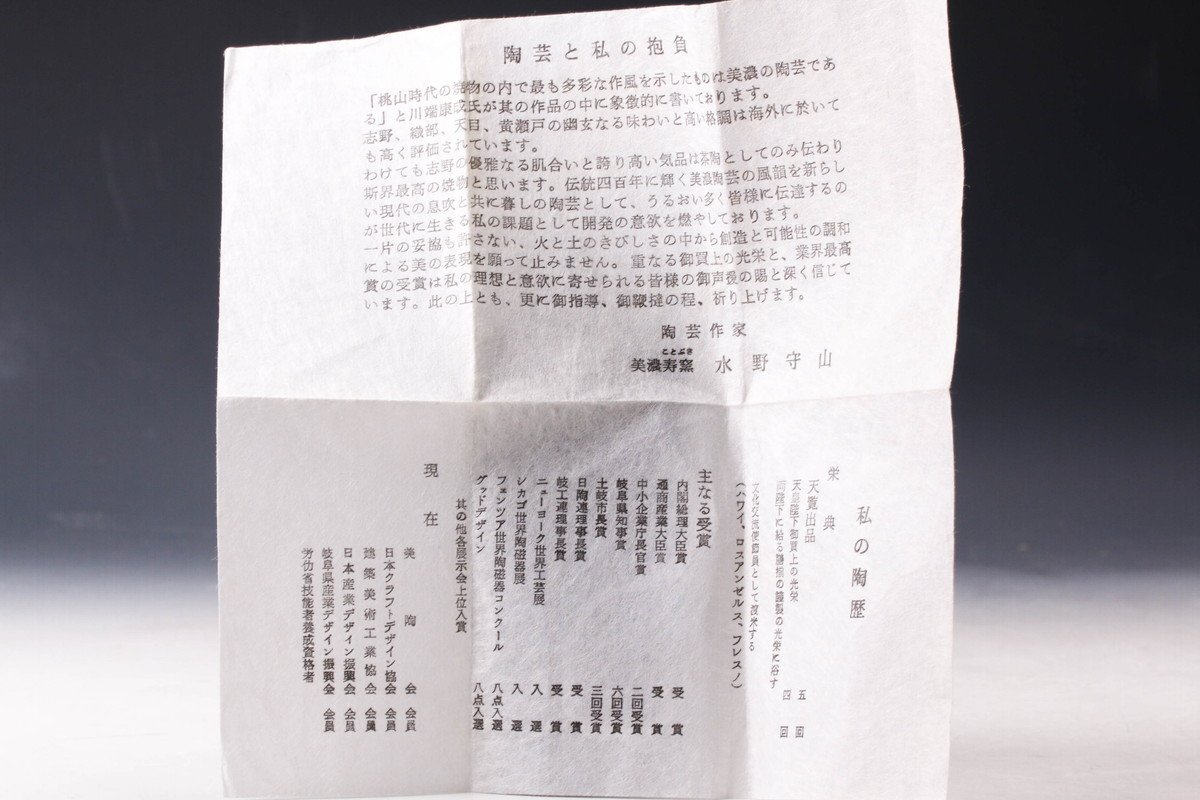 陶芸と私の抱負
「桃山時代の焼物の内で最も多彩な作風を示したものは美濃の陶芸であ
る」と川端康成氏が其の作品の中に象徴的に書いております。
志野、織部、天目、黄瀬戸の幽玄なる味わいと高い格調は海外に於いて
も高く評価されています。
わけても志野の優雅なる肌合いと誇り高い気品は茶陶としてのみ伝わり
斯界最高の焼物と思います。伝統四百年に輝く美濃陶芸の風韻を新らし
い現代の息吹と共に暮しの陶芸として、うるおい多く皆様に伝達するの
が世代に生きる私の課題として開発の意欲を燃やしております。
一片の妥協も許さない、火と土のきびしさの中から創造と可能性の調和
による美の表現を願って止みません。重なる御買上の光栄と、業界最高
賞の受賞は私の理想と意欲に寄せられる皆様の御声援の賜と深く信じて
います。此の上とも、更に御指導、御鞭撻の程、祈り上げます。
陶芸作家
ことぶき
美濃寿窯 水野守山
私の陶歴
栄典
天覧出品
天皇陛下御買上の光栄 五回
両陛下に給る謹製の光栄に浴す 四回
文化交流使節員として渡米する
(ハワイ、ロスアンゼルス、フレスノ)
主なる受賞
内閣総理大臣賞 受賞
通商産業大臣賞 受賞
中小企業庁長官賞 二回受賞
岐阜県知事賞 六回受賞
土岐市長賞 三回受賞
日陶連理事長賞 受賞
岐工連理事長賞 受賞
ニューヨーク世界工芸展 入選
シカゴ世界陶磁器展 入選
フェンツア世界陶磁器コンクール 八点入選
グッドデザイン 八点入選
其の他各展示会上位入賞
現在
美陶会 会員
日本クラフトデザイン協会 会員
建築美術工業協会 会員
日本産業デザイン振興会 会員
岐阜県産業デザイン振興会 会員
労働省技能者養成資格者